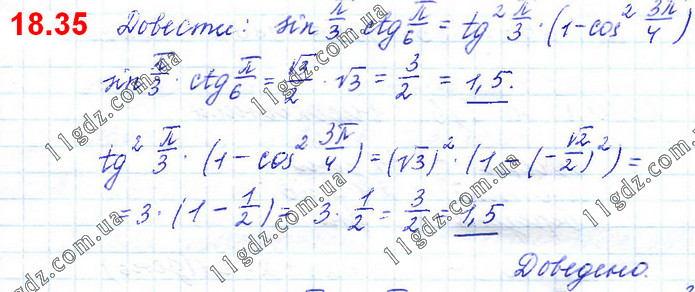 18.35 Довести: sin π/3 ctg π/6 = tg² π/3 · (1 - cos² 3π/4)
sin π/3 · ctg π/6 = √3/2 · √3 = 3/2 = 1,5.
tg² π/3 · (1 - cos² 3π/4) = (√3)² · (1 - (-√2/2)²) =
= 3 · (1 - 1/2) = 3 · 1/2 = 3/2 = 1,5
Доведено.
11gdz.com.ua
11gdz.com.ua
11gdz.com.ua
11gdz.com.ua
11gdz.com.ua